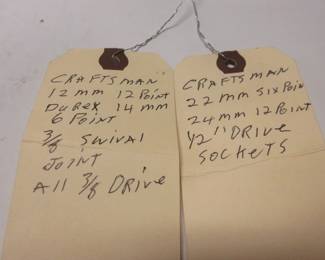 CRAFTSMAN
12 mm 12 POINT
DUREX 14 mm
6 POINT
3/8 SWIVAL
JOINT
All 3/8 DRIVE
CRAFTSMAN
22 mm SIX POINT
24 mm 12 POINT
1/2" DRIVE
SOCKETS